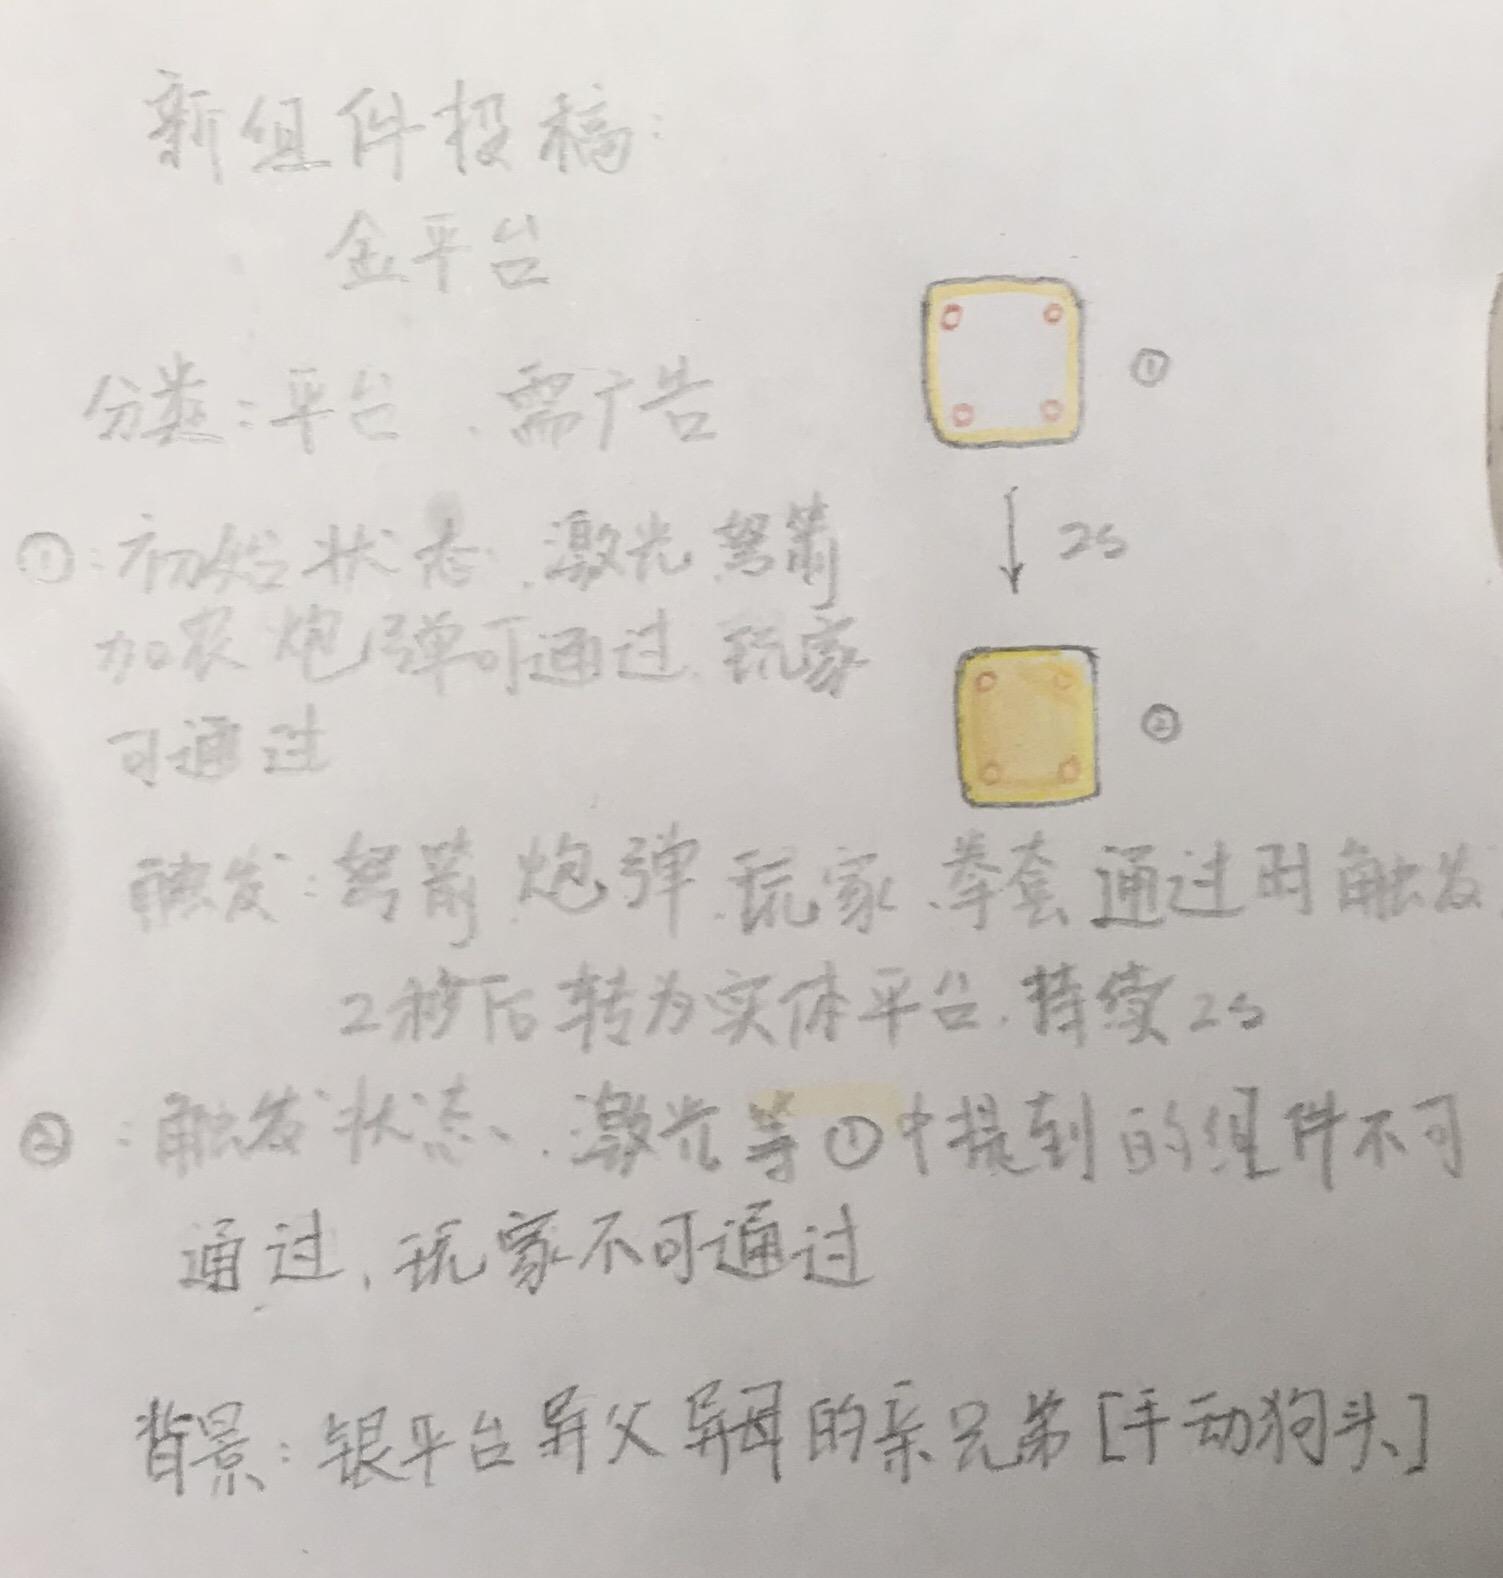 新组件投稿：
金平台
分类：平台、需广告
①
①：初始状态、激光弩箭
2s
加农炮弹可通过、玩家
可通过
②
触发：弩箭、炮弹、玩家、拳套通过时触发
2秒后转为实体平台、持续2s
②：触发状态、激光等①中提到的组件不可
通过、玩家不可通过
背景：银平台异父异母的亲兄弟[手动狗头]